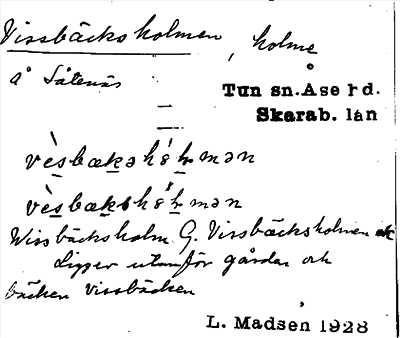 Vissbäcksholmen, holme
å Såtenäs
Tun sn. Åse hd.
Skarab. län
vèsbækshó̀ḷmən
vèsbækshó̀ḷmən
Wissbäcksholm G. Vissbäcksholmen ek
Ligger utanför gården och
bäcken Vissbäcken
L. Madsen 1928